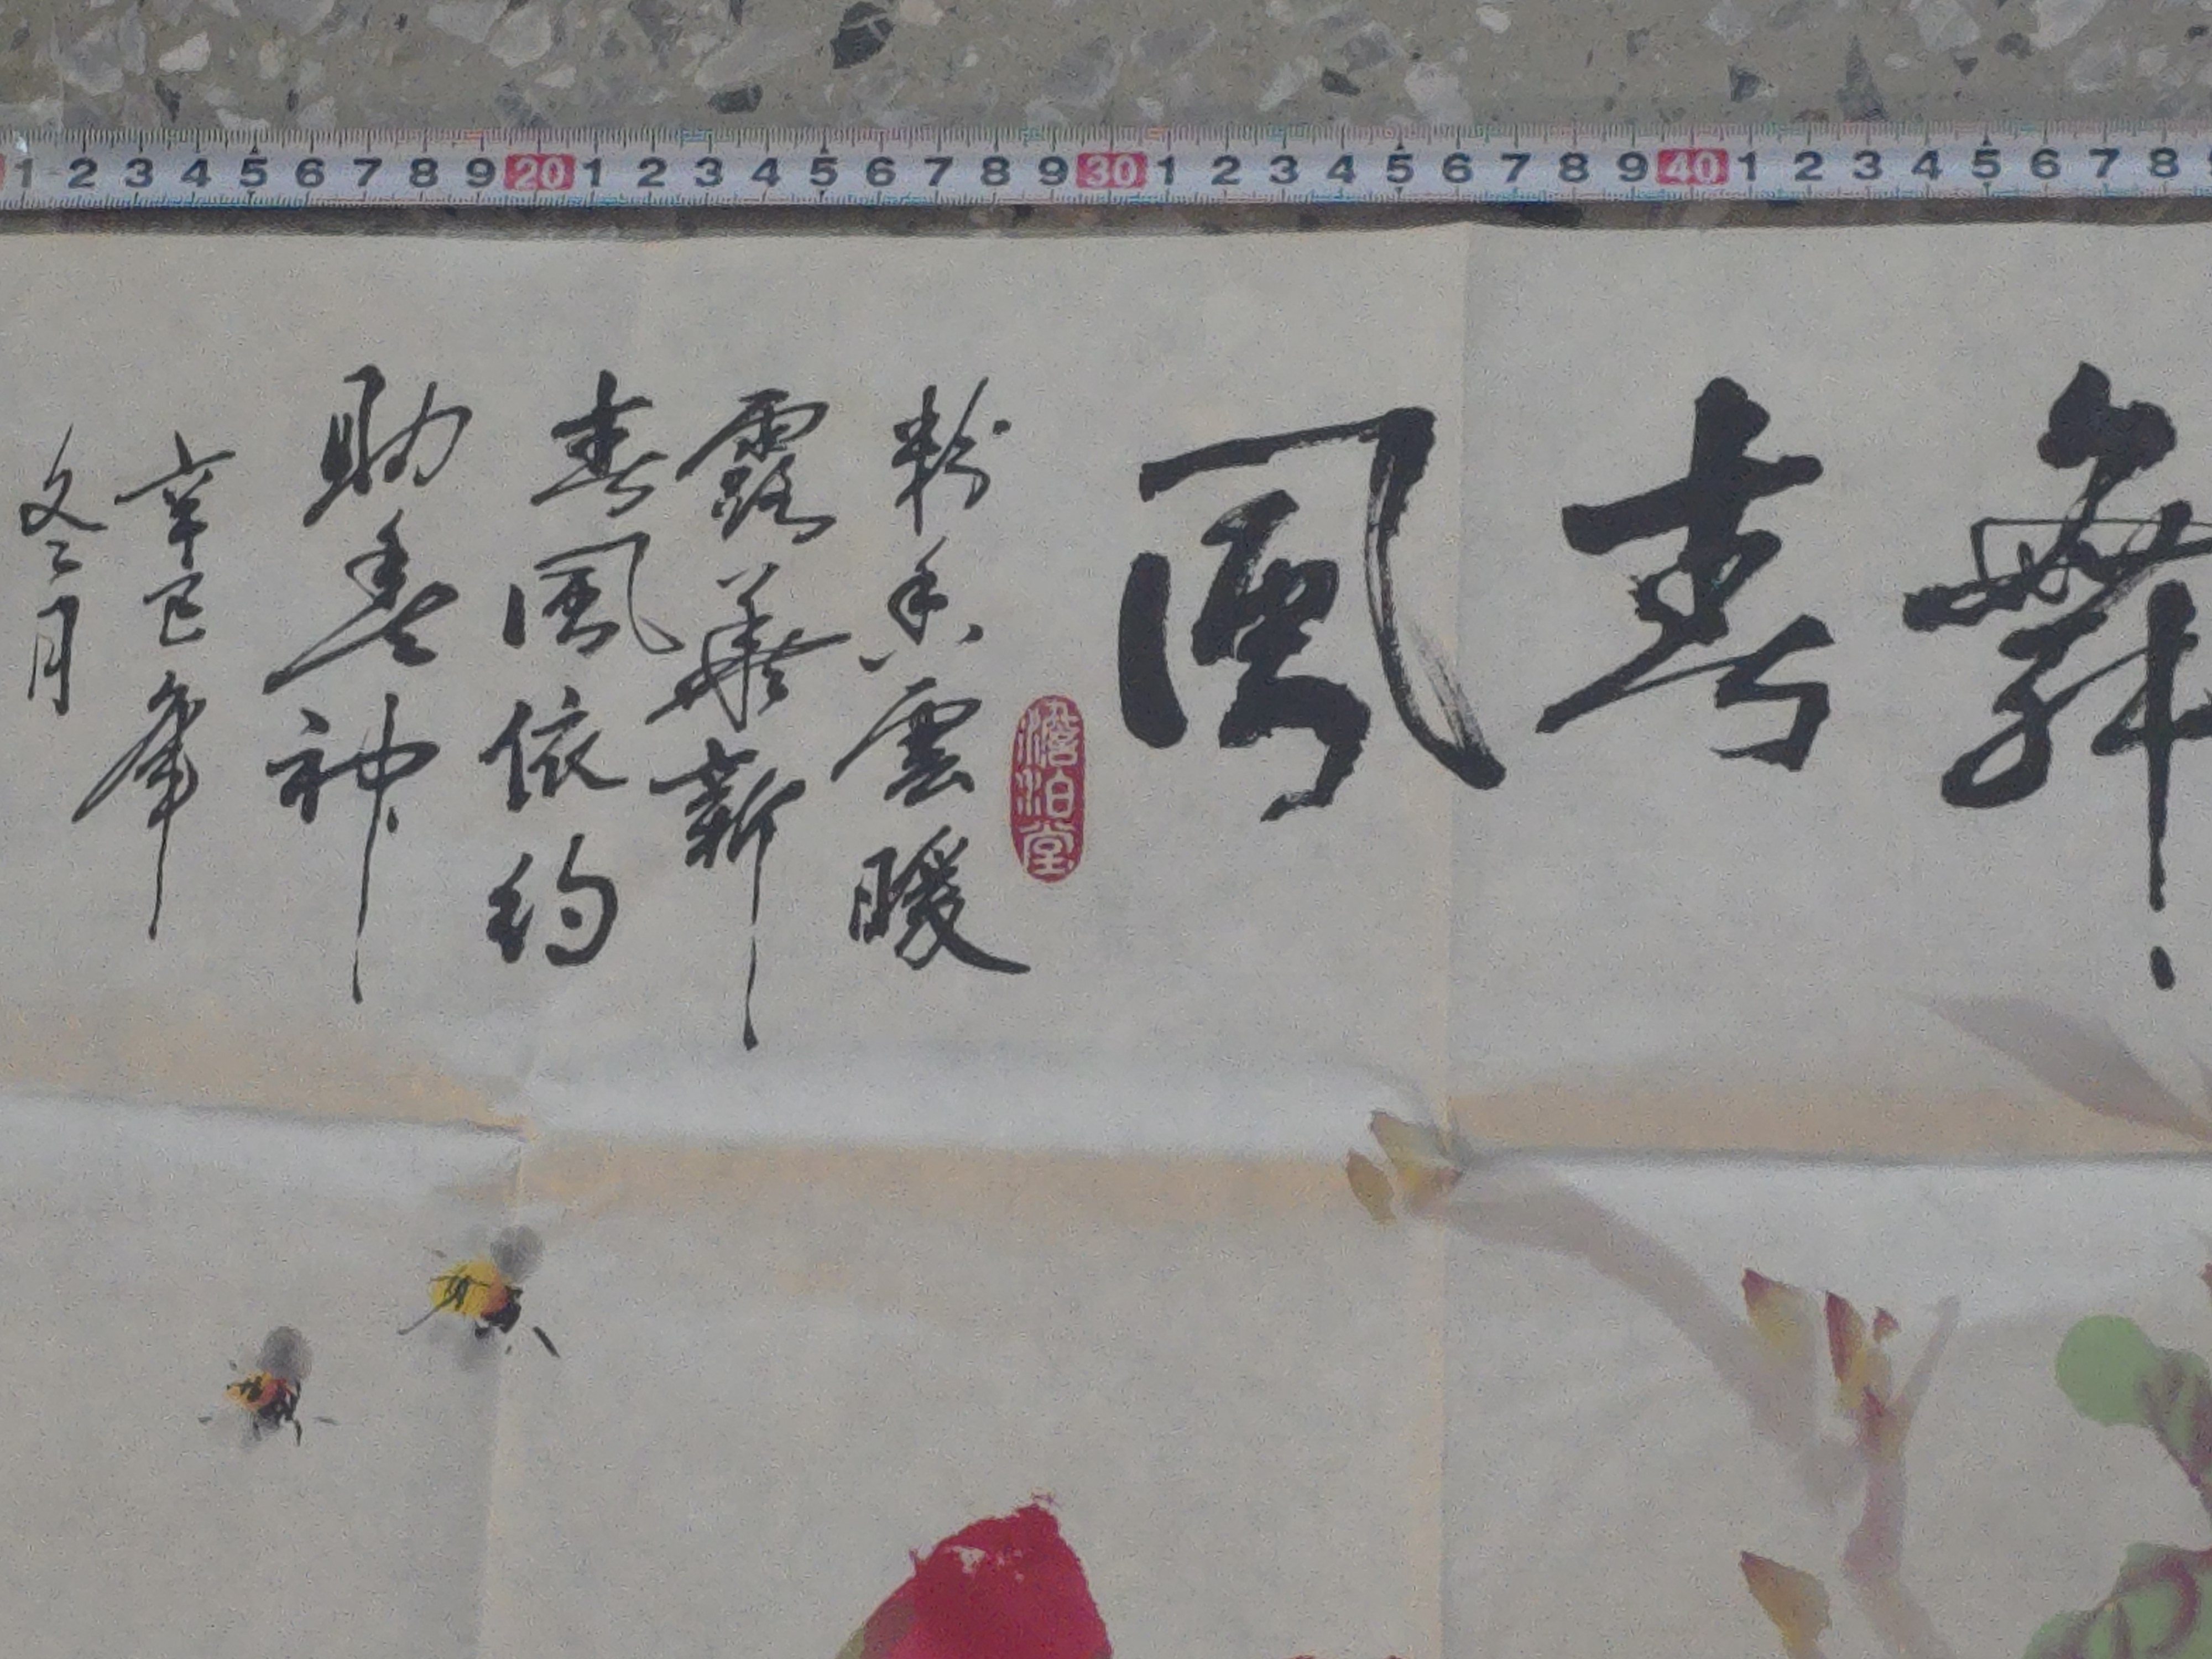 1 2 3 4 5 6 7 8 9 20 1 2 3 4 5 6 7 8 9 30 1 2 3 4 5 6 7 8 9 40 1 2 3 4 5 6 7 8
舞春風
澹泊堂
粉香雲暖
露華新
春風依約
助春神
辛巳年
冬月